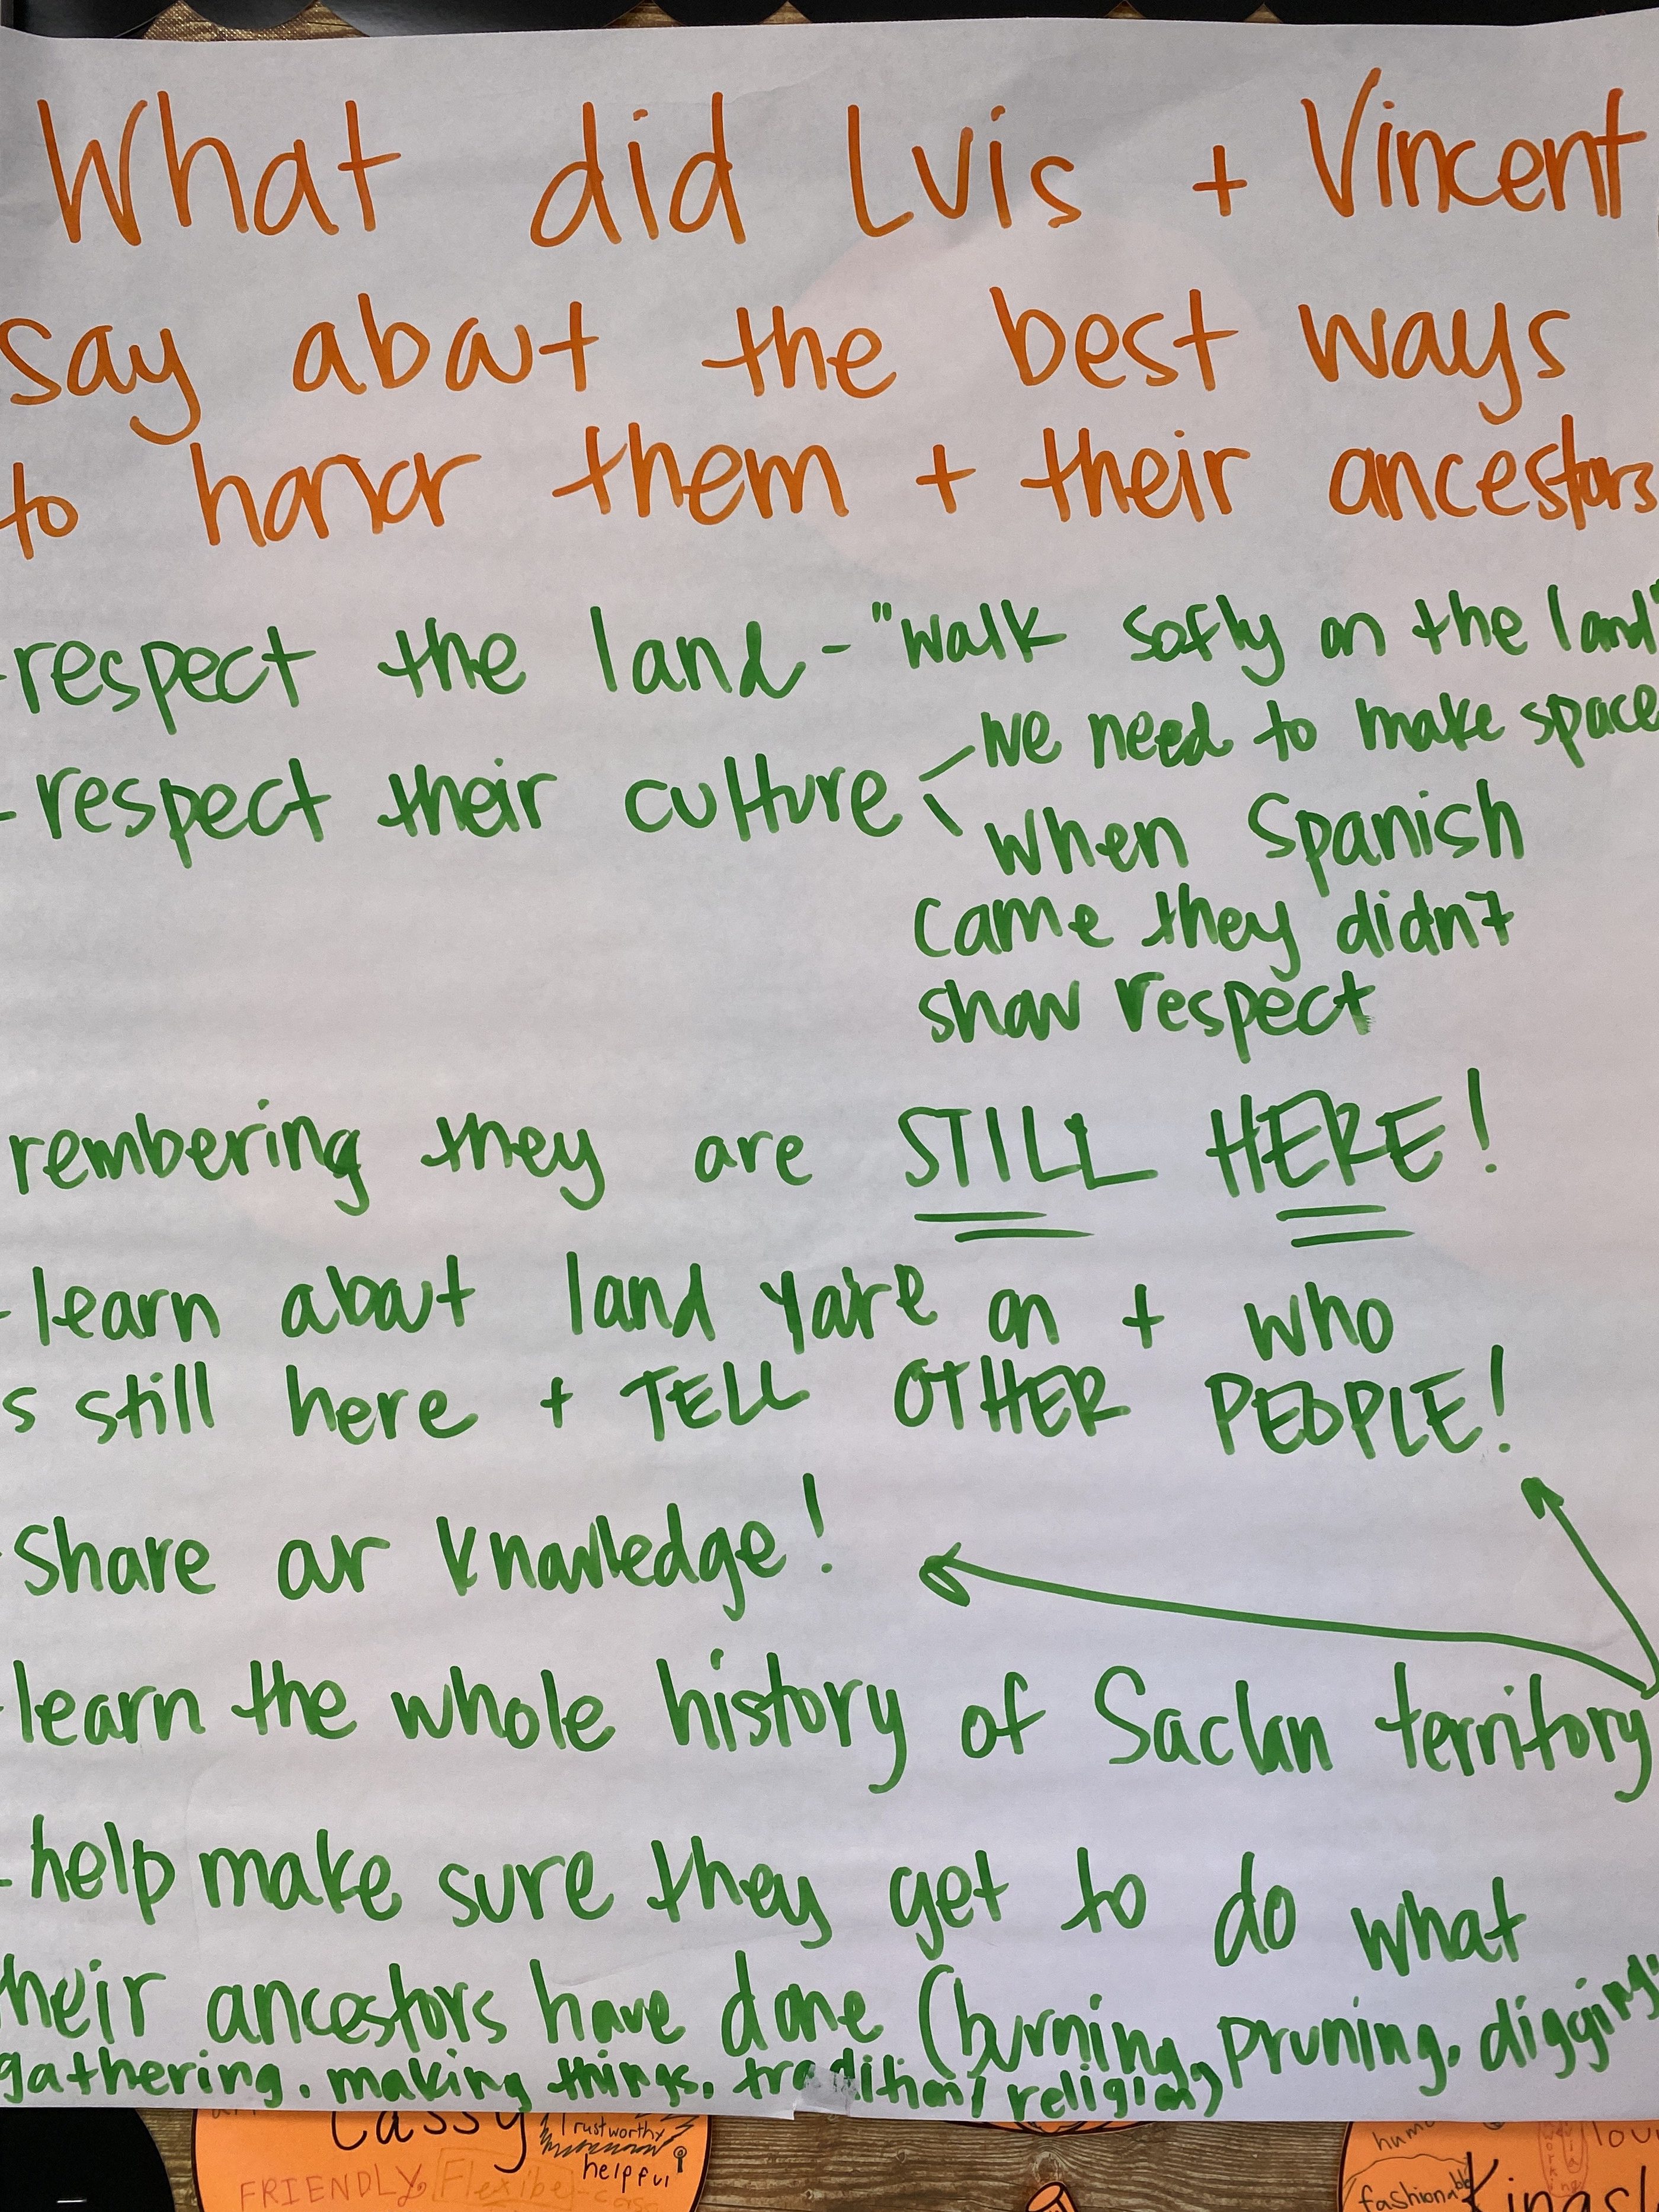 What did Luis + Vincent
say about the best ways
to honor them + their ancestors
-respect the land - "walk softly on the land"
- respect their culture
we need to make space
when Spanish
came they didn't
show respect
rembering they are STILL HERE!
-learn about land you're on + who
s still here + TELL OTHER PEOPLE!
-Share our knowledge!
-learn the whole history of Saclan territory
-help make sure they get to do what
their ancestors have done (burning, pruning, digging,
gathering, making things, tradition/religion)
Cassy
Trustworthy
helpful
FRIENDLY Flexibe
fashionable